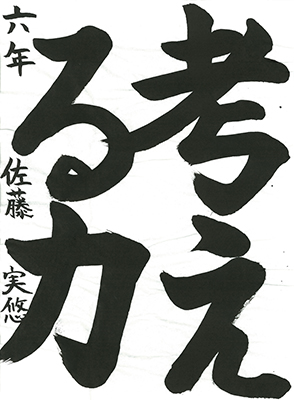 考え
る力
六年 佐藤 実悠